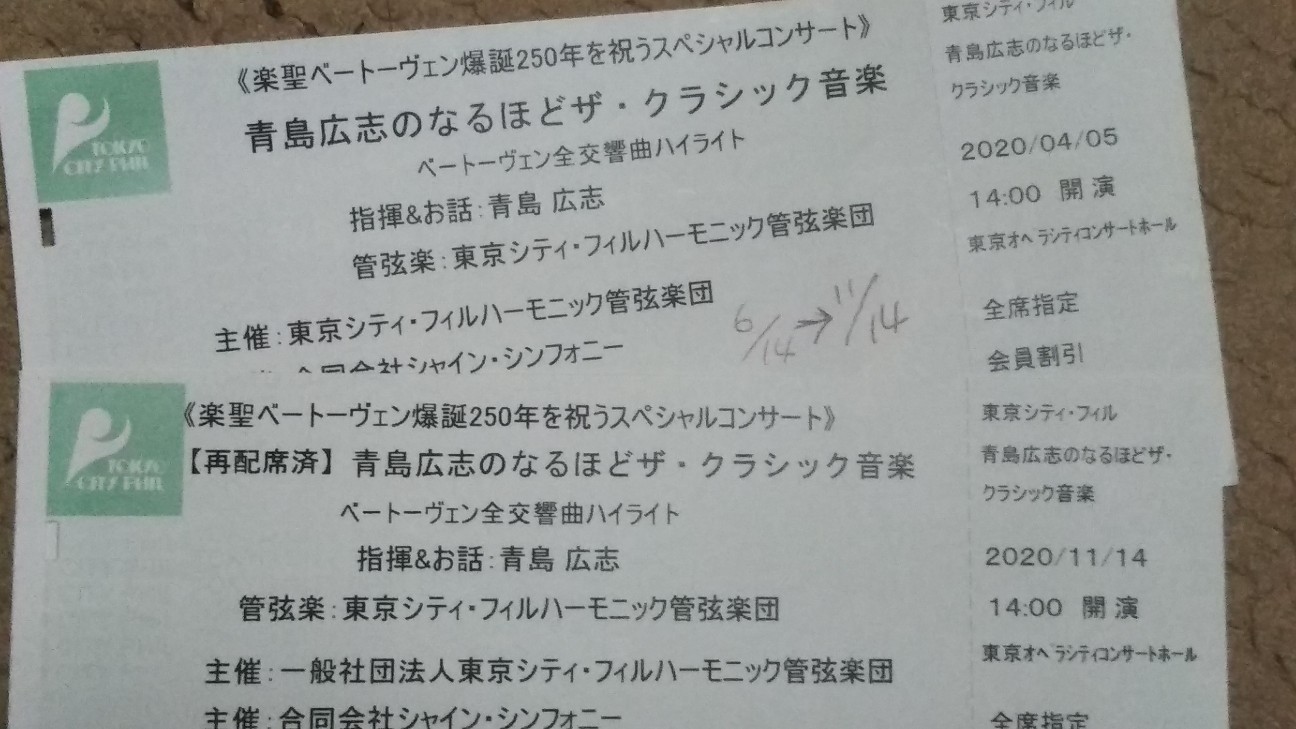 TOKYO
CITY PHIL
《楽聖ベートーヴェン爆誕250年を祝うスペシャルコンサート》
青島広志のなるほどザ・クラシック音楽
ベートーヴェン全交響曲ハイライト
指揮&お話:青島 広志
管弦楽:東京シティ・フィルハーモニック管弦楽団
主催:東京シティ・フィルハーモニック管弦楽団
合同会社シャイン・シンフォニー
6/14→11/14
東京シティ・フィル
青島広志のなるほどザ・
クラシック音楽
2020/04/05
14:00 開演
東京オペラシティコンサートホール
全席指定
会員割引
TOKYO
CITY PHIL
《楽聖ベートーヴェン爆誕250年を祝うスペシャルコンサート》
【再配席済】青島広志のなるほどザ・クラシック音楽
ベートーヴェン全交響曲ハイライト
指揮&お話:青島 広志
管弦楽:東京シティ・フィルハーモニック管弦楽団
主催:一般社団法人東京シティ・フィルハーモニック管弦楽団
主催:合同会社シャイン・シンフォニー
東京シティ・フィル
青島広志のなるほどザ・
クラシック音楽
2020/11/14
14:00 開演
東京オペラシティコンサートホール
全席指定